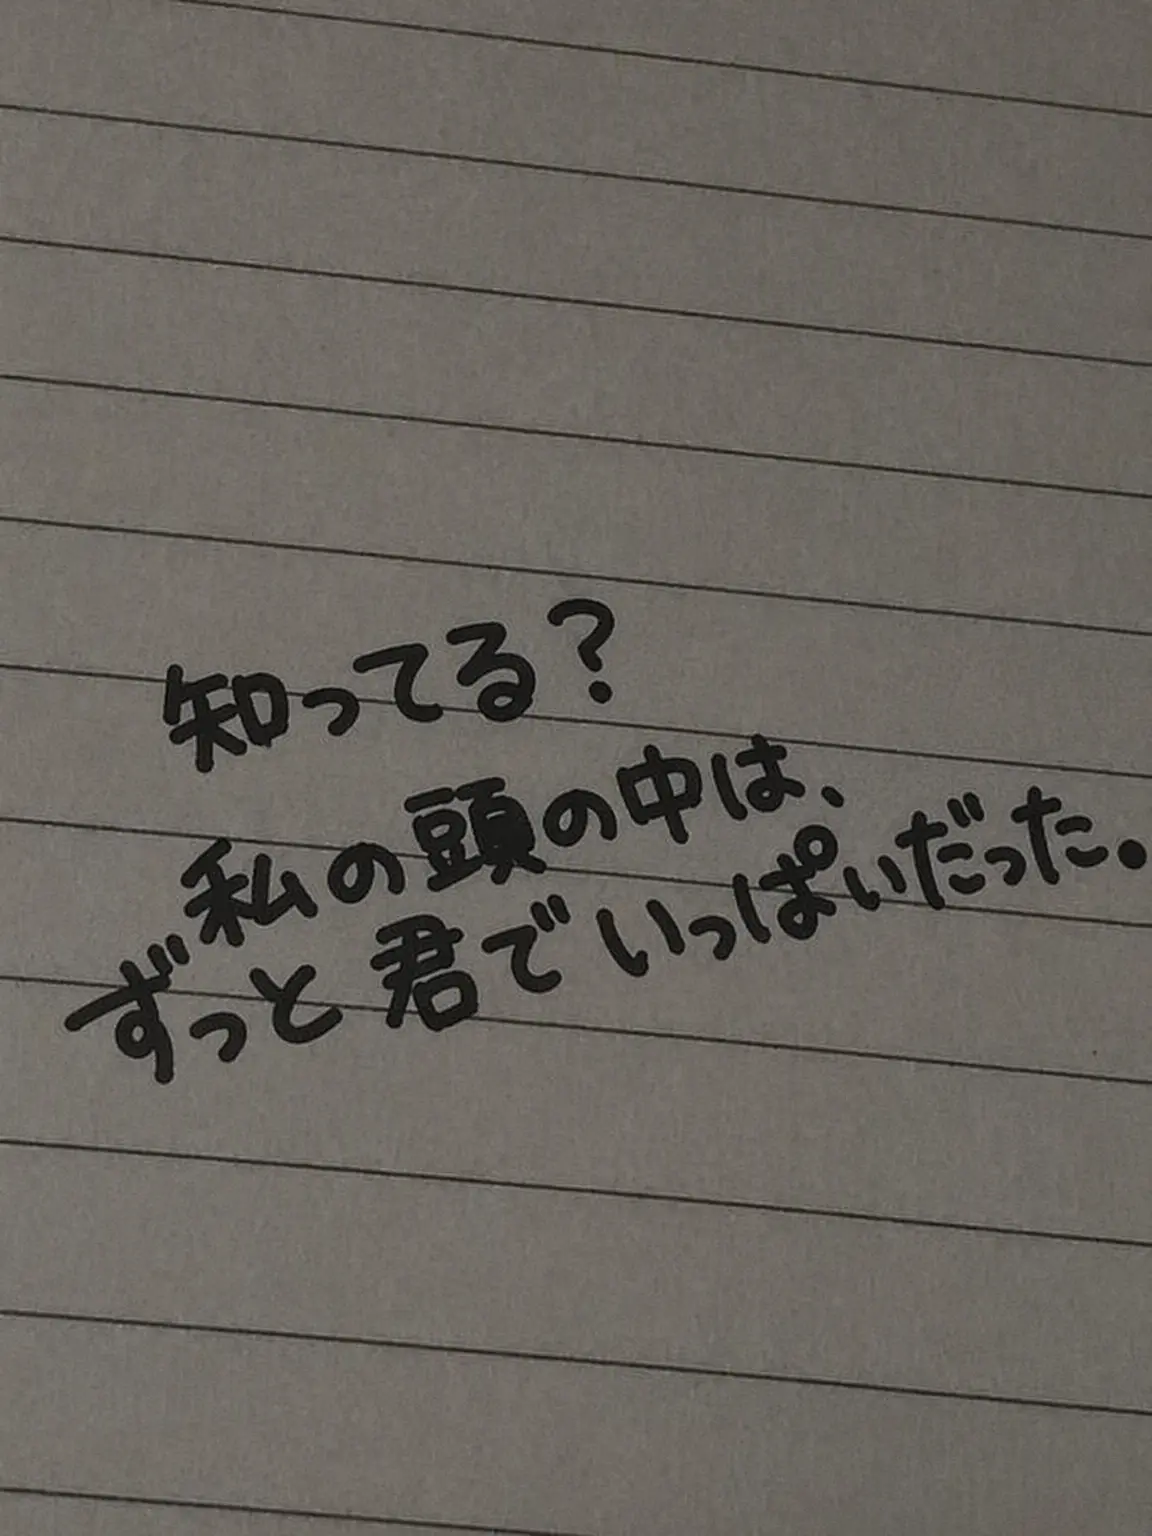 知ってる?
私の頭の中は、
ずっと君でいっぱいだった。